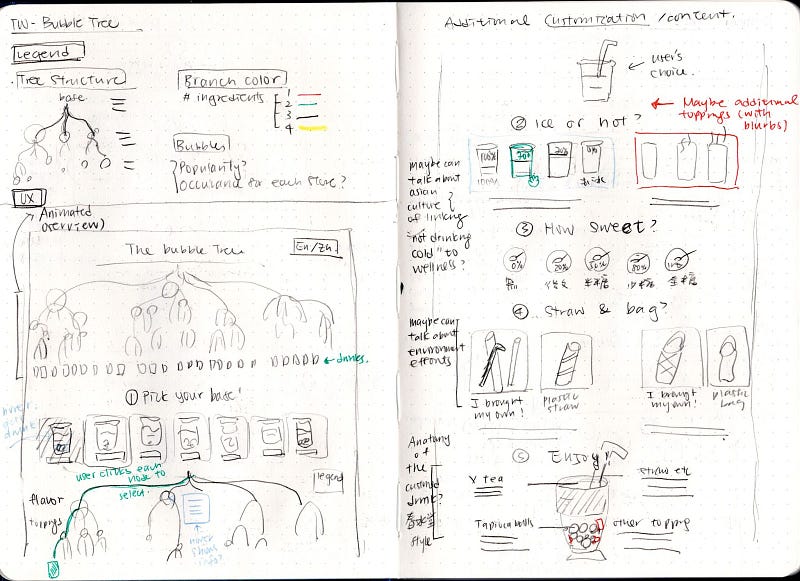 TW - Bubble Tree
Legend
Tree Structure
base
Branch color
# ingredients
1
2
3
4
Bubbles
Popularity?
occurance for each store?
UX
Animated
overview)
The bubble Tree
En/Zh.
drinks.
① Pick your base!
hover
user clicks each
node to
select.
legend
flavor
toppings
hover
shows
info?
Additional Customization / content.
user's
choice.
Maybe additional
toppings (with
blurbs)
② Ice or not?
100%
70%
maybe can
talk about
asian
culture
of linking
"not drinking
cold" to
wellness?
③ How sweet?
0%
20%
50%
80%
半糖
少糖
全糖
④ Straw & bag?
maybe can
talk about
environment
efforts
I brought
my own!
plastic
straw
I brought
my own!
plastic
bag
⑤ Enjoy!
Anatomy
of
the
custom
drink?
春水堂
style
X tea
straw etc
Tapioca balls
other topping